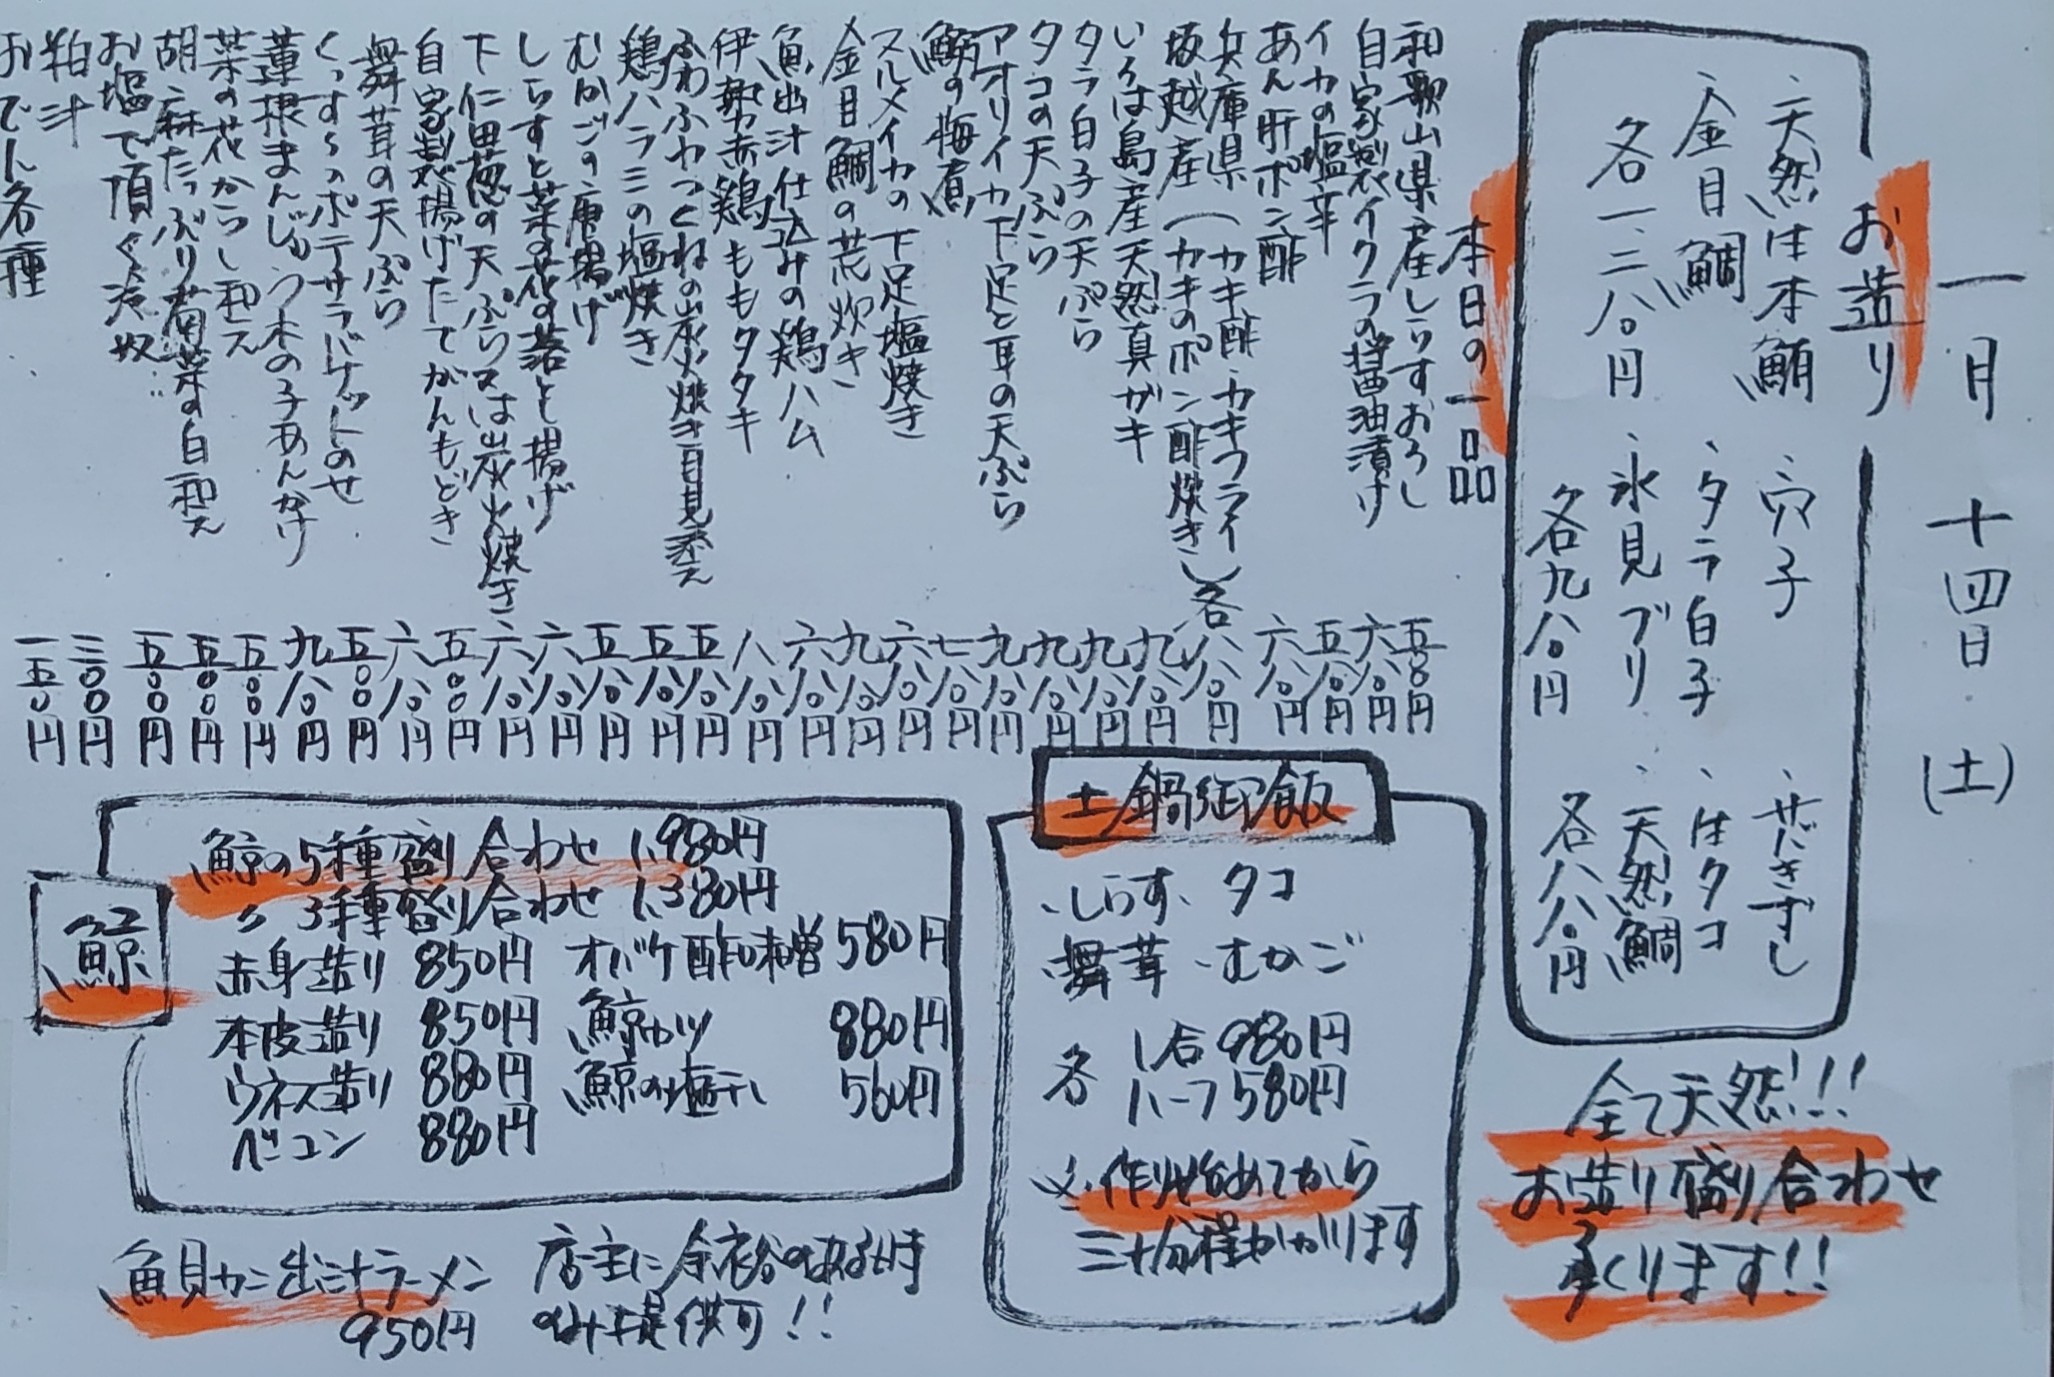 一月 十四日(土)
お造り
・天然生本鮪
・金目鯛
各一、二八〇円
・穴子
・タラ白子
・氷見ブリ
各九八〇円
・生だこ
・天然鯛
各八八〇円
全て天然!!!
お造り盛り合わせ
承くります!!
本日の一品
和歌山県産しらすおろし 五八〇円
自家製イクラの醤油漬け 六八〇円
イカの塩辛 五八〇円
あん肝ポン酢 六八〇円
兵庫県(カキ酢・カキフライ
坂越産(カキのポン酢焼き)各 八八〇円
いろは島産天然真ガキ 九八〇円
タラ白子の天ぷら 九八〇円
タコの天ぷら 九八〇円
アオリイカ下足と耳の天ぷら 九八〇円
鰯の梅煮 七八〇円
スルメイカの下足塩焼き 六八〇円
金目鯛の荒炊き 九八〇円
魚出汁仕込みの鶏ハム 六八〇円
伊勢赤鶏ももタタキ 八八〇円
ふわふわつくねの炭火焼き自見添え 五八〇円
鶏ハラミの塩焼き 五八〇円
むかごの唐揚げ 五八〇円
しらすと菜の花の落とし揚げ 六八〇円
下仁田葱の天ぷら又は炭火焼き 六八〇円
自家製揚げたてがんもどき 五八〇円
舞茸の天ぷら 六八〇円
くっすぅのポテサラバケットのせ 五〇〇円
蓮根まんじゅう木の子あんかけ 九八〇円
菜の花からし和え 五〇〇円
胡麻たっぷり菊菜の白和え 五〇〇円
お塩で頂く冷奴 五〇〇円
粕汁 三〇〇円
おでん各種 一五〇円
土鍋御飯
・しらす・タコ
・舞茸・むかご
各 1合 980円
ハーフ 580円
※作り始めてから
三十分程かかります
鯨
鯨の5種盛り合わせ 1,980円
〃 3種盛り合わせ 1,380円
赤身造り 850円 オバケ酢味噌 580円
本皮造り 850円 鯨カツ 880円
ウネス造り 880円 鯨の塩干し 560円
ベーコン 880円
魚貝カニ出汁ラーメン
950円
店主に余裕のある時
のみ提供可!!